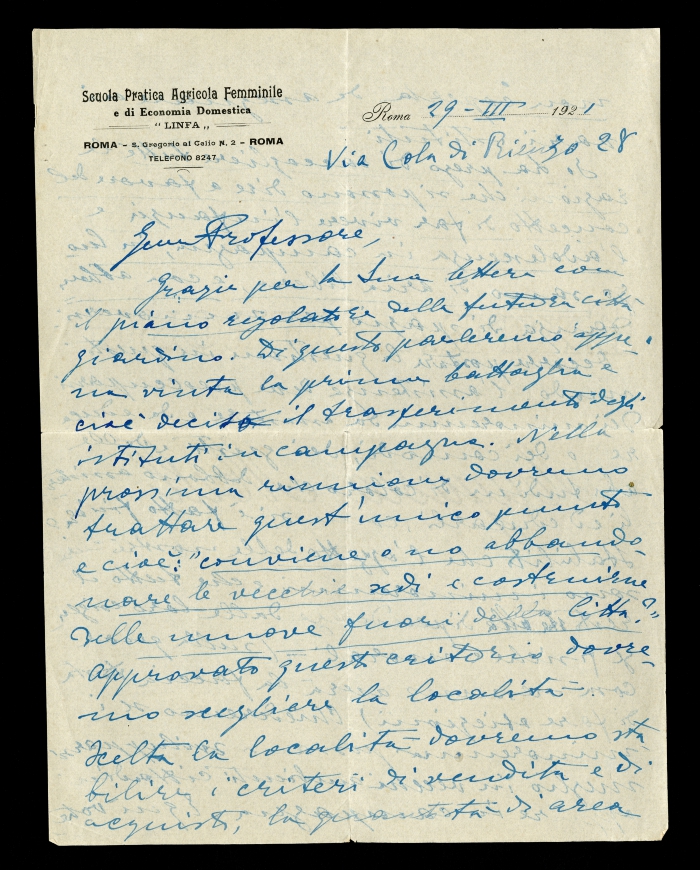 Scuola Pratica Agricola Femminile
e di Economia Domestica
" LINFA "
ROMA - S. Gregorio al Celio N. 2 - ROMA
TELEFONO 8247
Roma 29-III 1921
Via Cola di Rienzo 28
Professore,
Grazie per la Sua lettera con
il piano regolatore della futura città
giardino. Di questo parleremo appe-
na vinta la prima battaglia e
cioè deciso il trasferimento degli
istituti in campagna. Nella
prossima riunione dovremo
trattare quest'unico punto
e cioè: "conviene o no abbando-
nare le vecchie sedi e costruirne
delle nuove fuori della città?"
approvato questo criterio dovre-
mo scegliere la località
Scelta la località dovremo sta
bilire i criteri di vendita e di
acquisti, la quantità di area